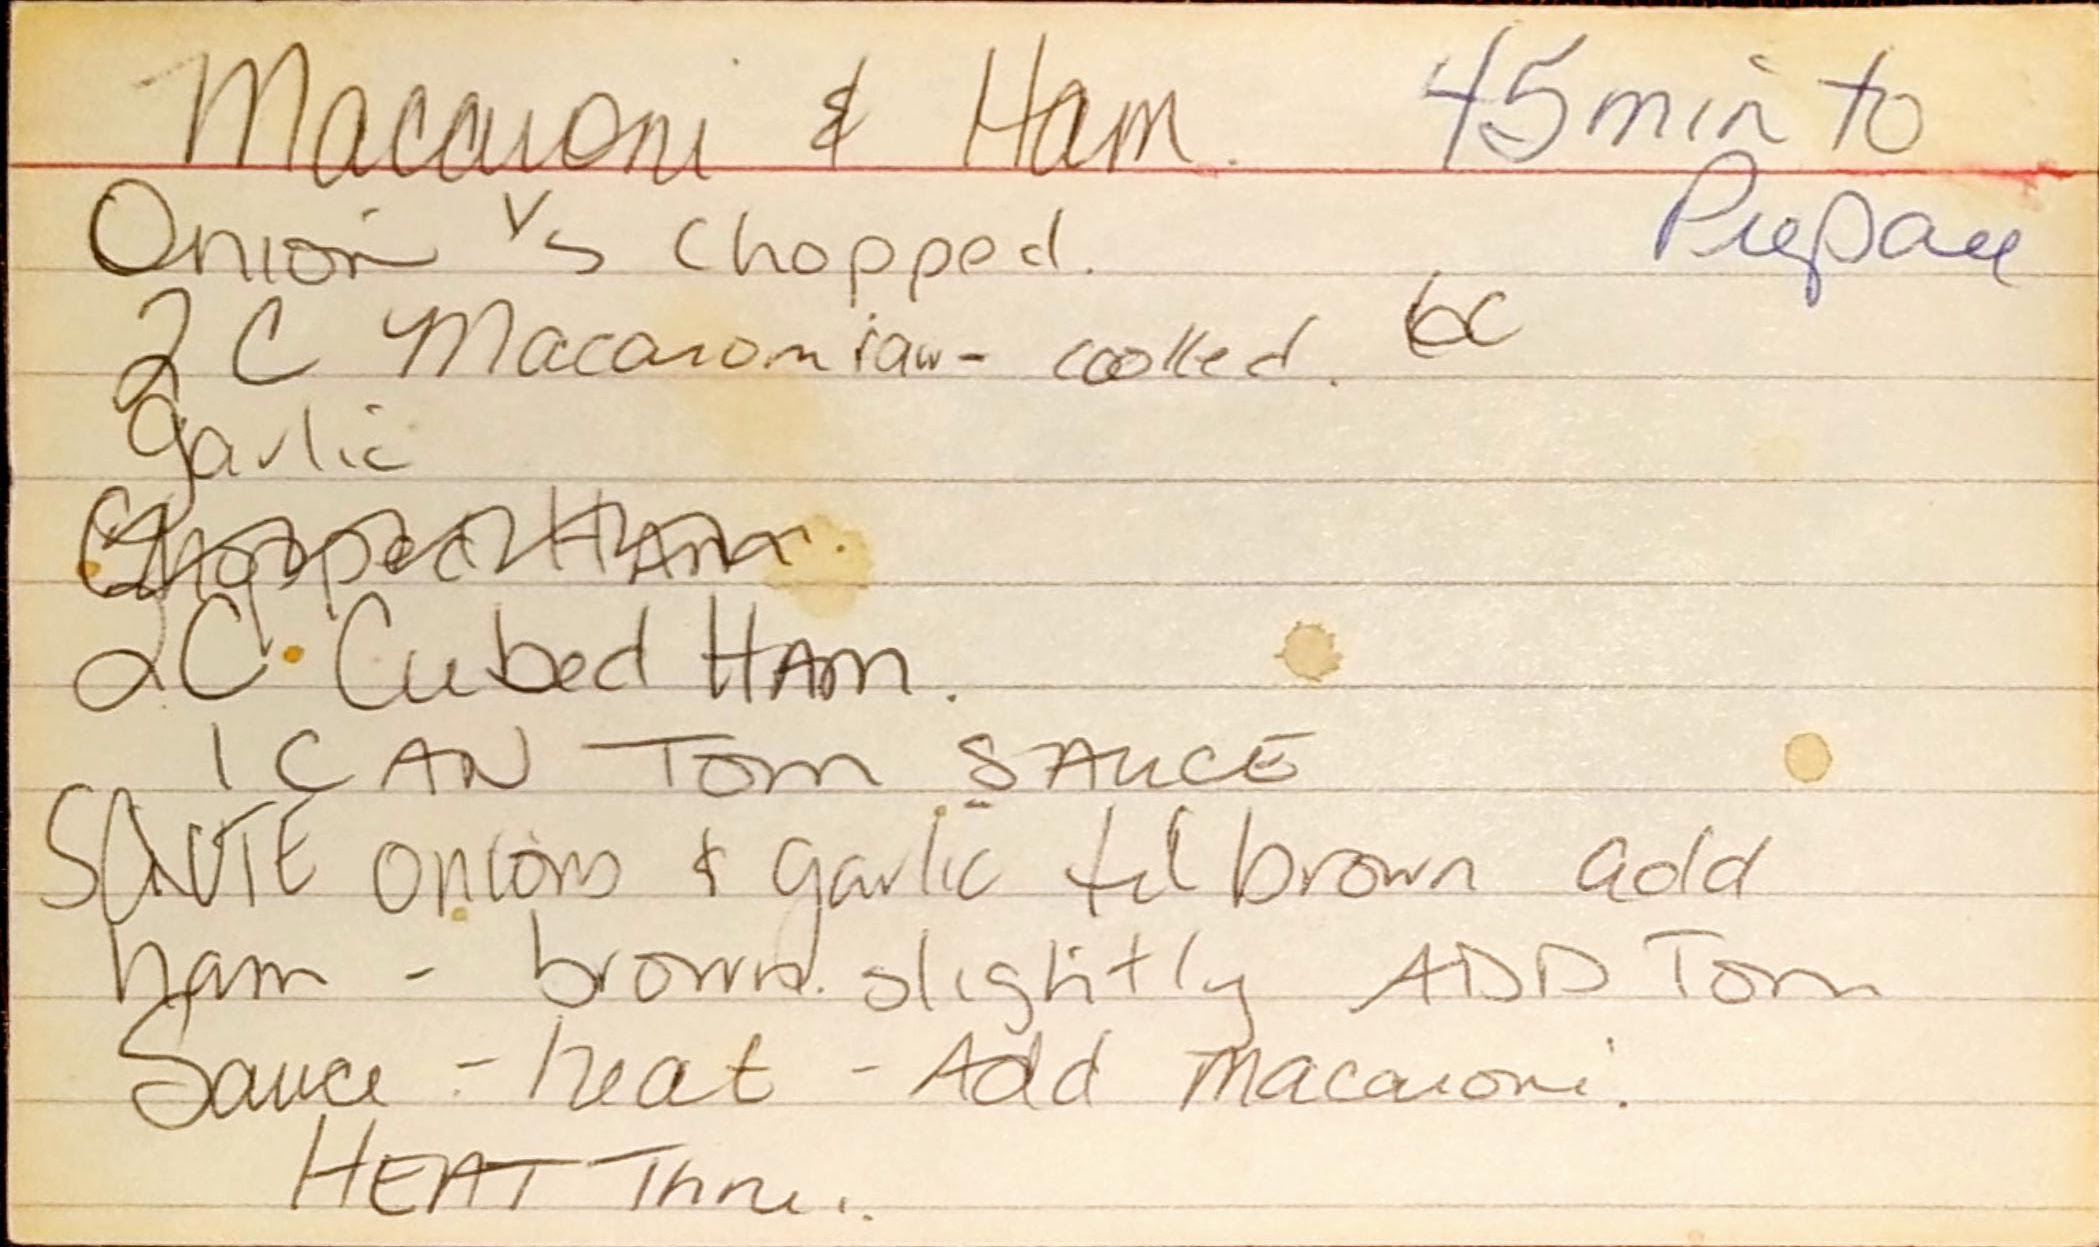 Macaroni & Ham. 45 min to
Prepare
Onion chopped.
2 C Macaroni raw - cooked. 6C
garlic
Chopped Ham.
2C. Cubed HAm.
1 CAN Tom SAUCE
SAUTE onions & garlic til brown add
ham - brown slightly ADD Tom
Sauce - heat - Add macaroni.
HEAT Thru.